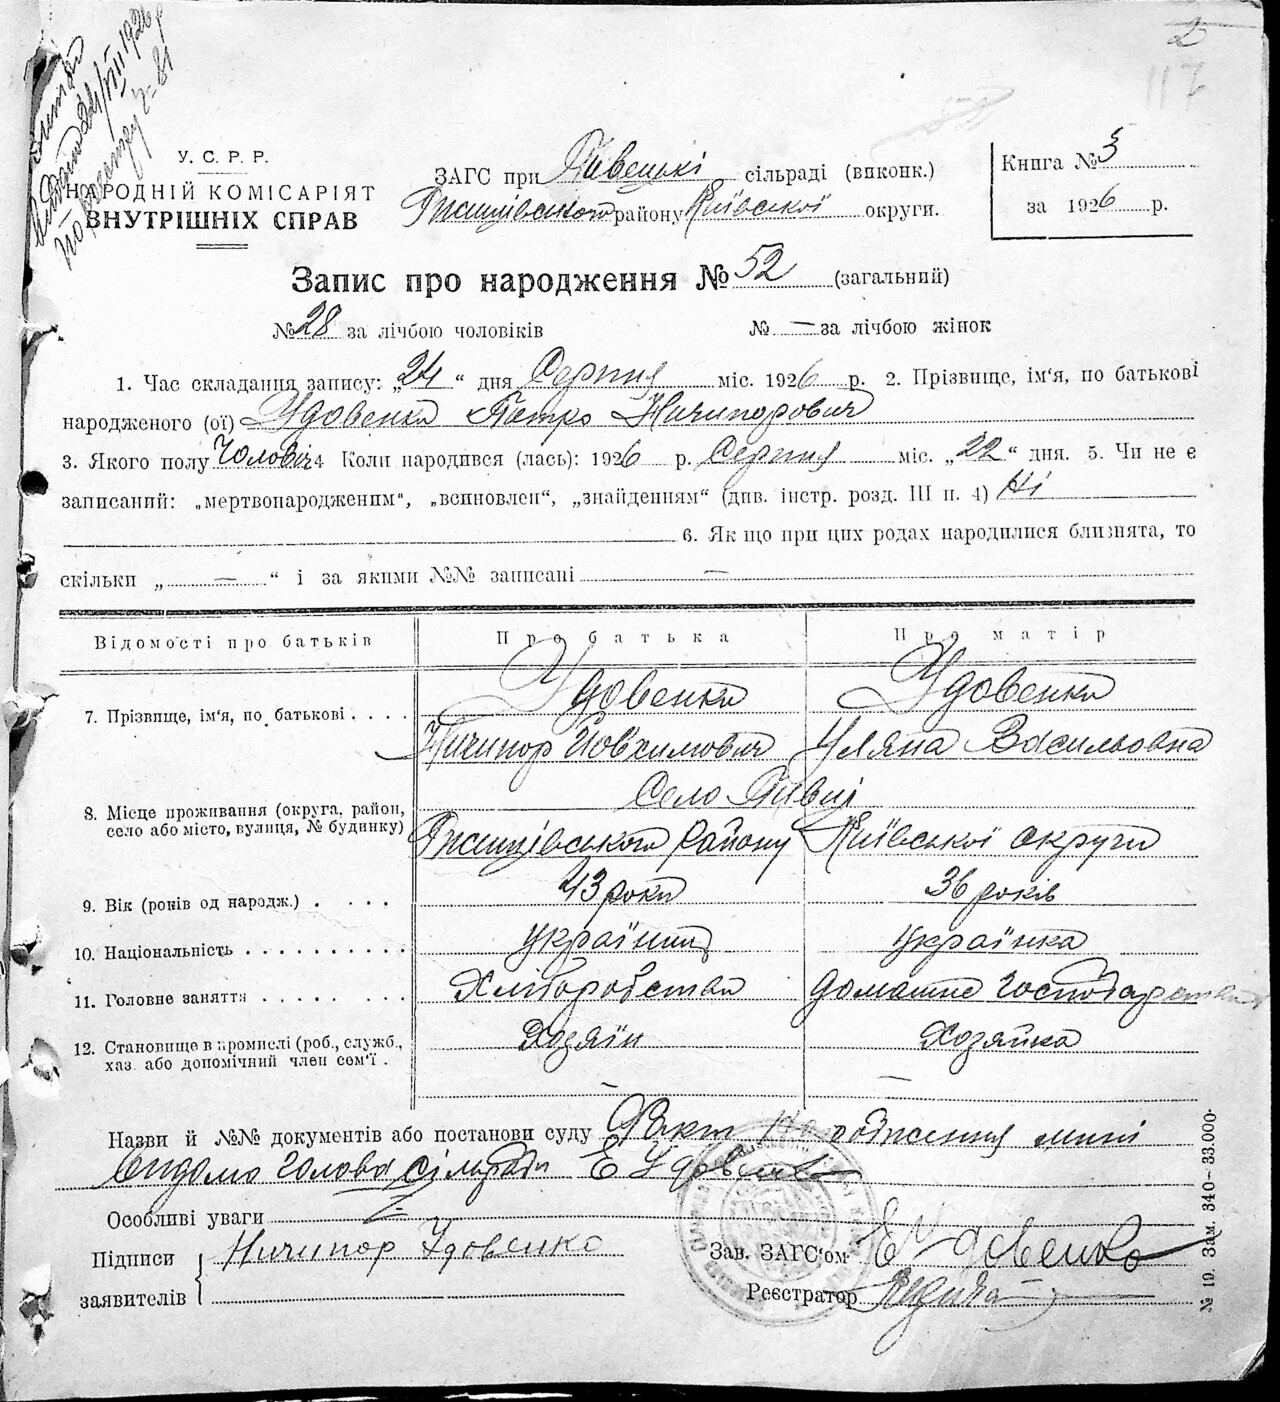 2
117
Витяг
видано 24/VIII 1926 р
по реєстру 2-81
У. С. Р. Р.
НАРОДНІЙ КОМІСАРІЯТ
ВНУТРІШНІХ СПРАВ
ЗАГС при Півецькі сільраді (виконк.)
Ржищівського району Київської округи.
Книга № 3
за 1926 р.
Запис про народження № 52 (загальний)
№ 28 за лічбою чоловіків № — за лічбою жінок
1. Час складання запису: „24“ дня Серпня міс. 1926 р. 2. Прізвище, ім'я, по батькові
народженого (ої) Удовенко Петро Ничипорович
3. Якого полу Чоловіч 4 Коли народився (лась): 1926 р. Серпня міс. „22“ дня. 5. Чи не є
записаний: „мертвонародженим“, „всиновлен“, „знайденням“ (див. інстр. розд. III п. 4) Ні
6. Як що при цих родах народилися близнята, то
скільки „ — “ і за якими №№ записані —
Відомості про батьків Про батька Про матір
7. Прізвище, ім'я, по батькові . . . . Удовенко Удовенко
Ничипор Йовхимович Уляна Васильовна
8. Місце проживання (округа, район, село або місто, вулиця, № будинку) Село Півці
Ржищівського району Київської округи
9. Вік (років од народж.) . . . . 43 роки 36 років
10. Національність . . . . . . . . . . українец українка
11. Головне заняття . . . . . . . . Хліборобство домашнє господарство
12. Становище в промислі (роб., служб., хаз. або допомічний член сем'ї . Хозяїн Хозяйка
— —
Назви й №№ документів або постанови суду Факт народження мині
відомо голова сільради Е Удовенко
Особливі уваги
Підписи Ничипор Удовенко Зав. ЗАГС'ом Е Удовенко
заявителів Реєстратор
№ 19. Зам. 340—33.000.